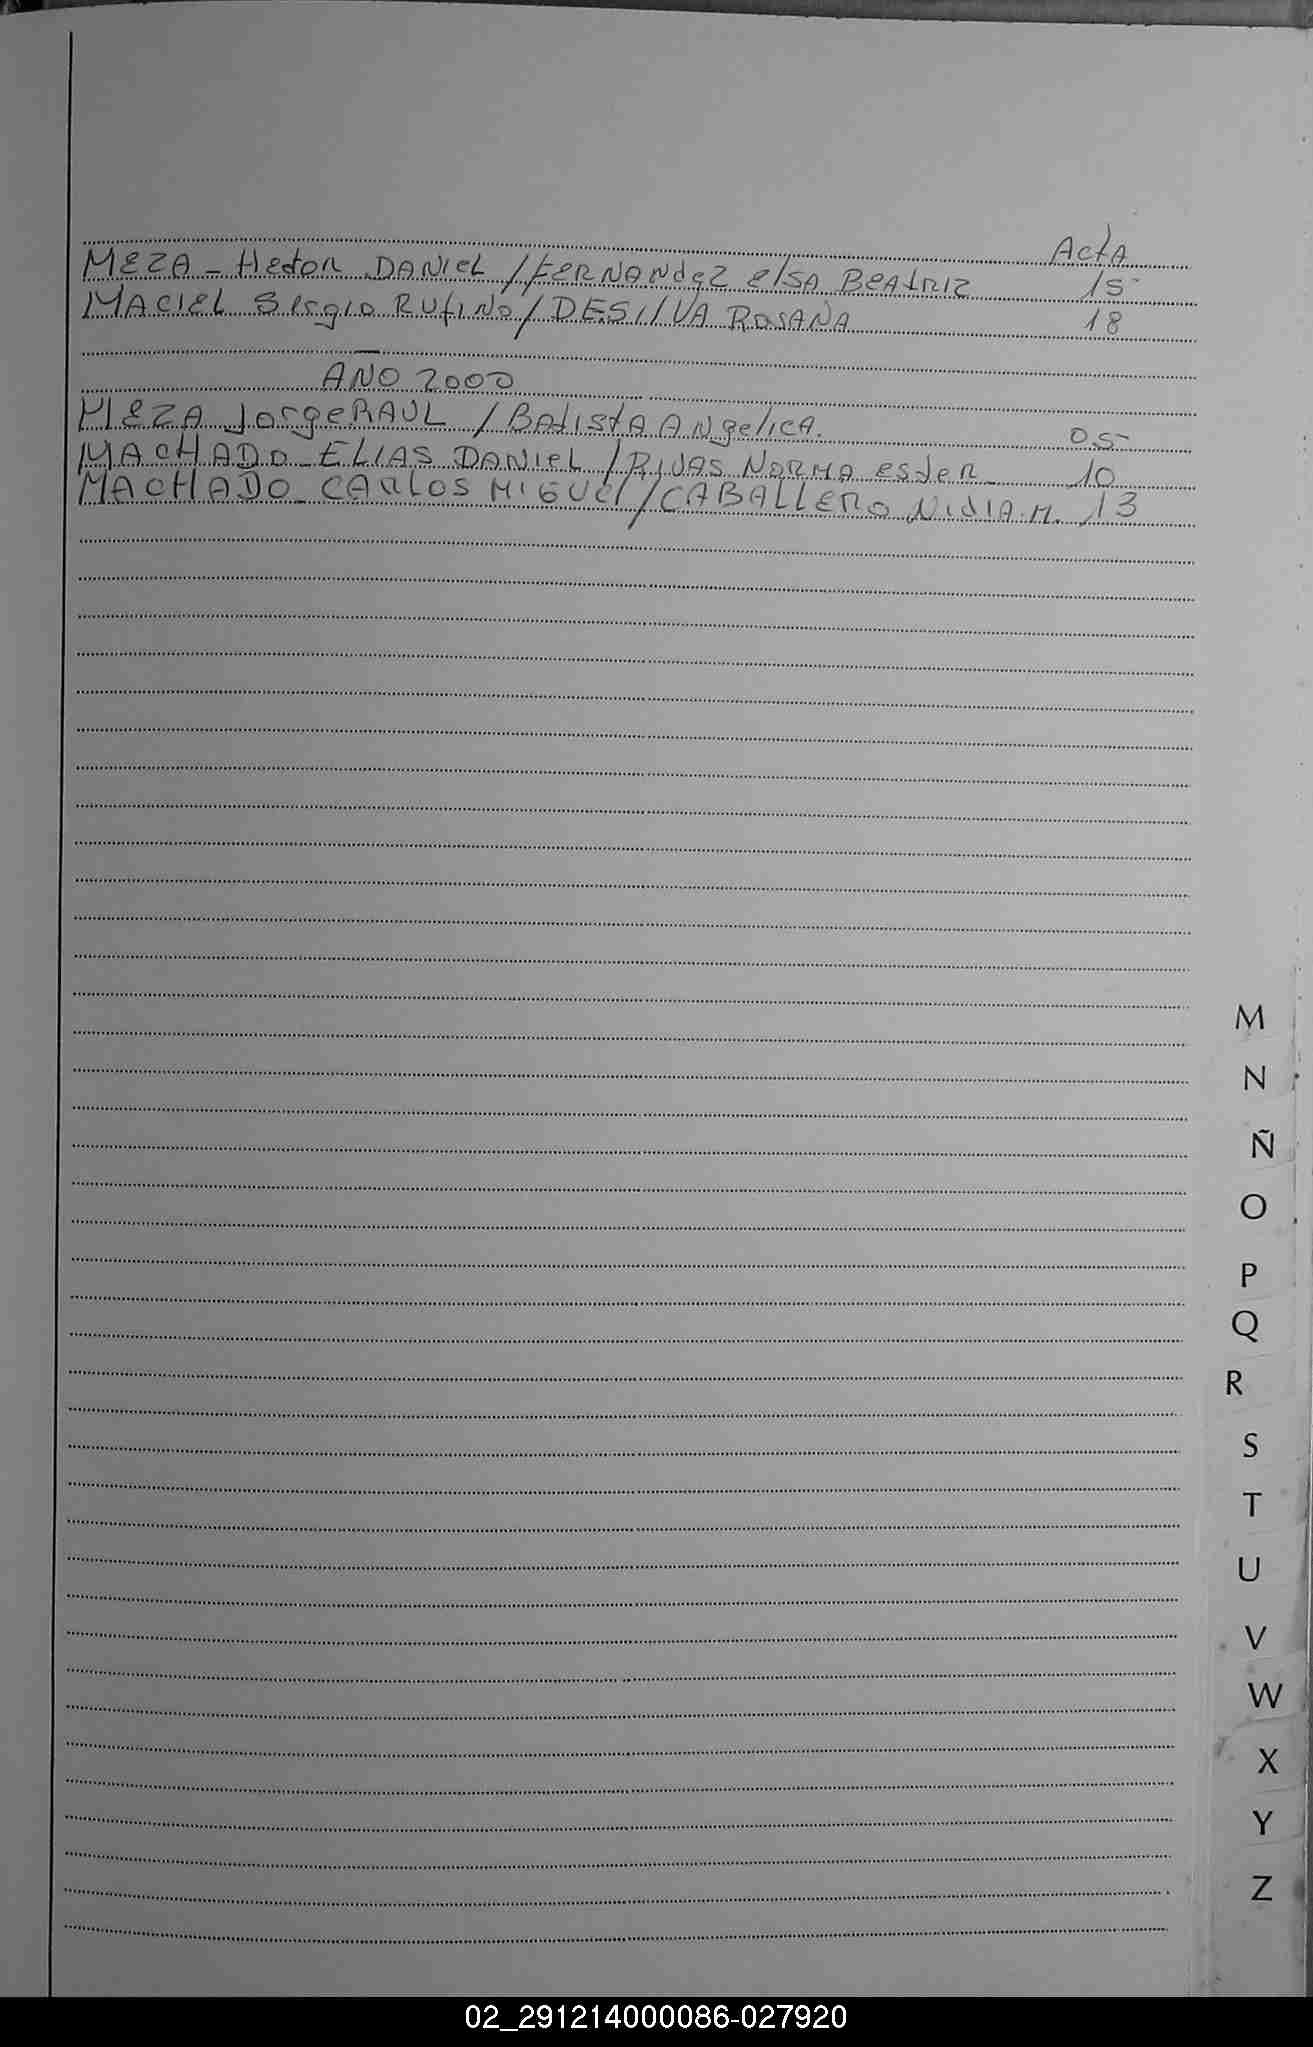 Acta
MEZA - Hector DANIEL / FERNANdez elsA BeAtRIZ 15
MACIEL Sergio RUfINO / DESILVA ROSANA 18
AÑO 2000
MEZA JorgeRAUL / BAtIStA ANgelICA. 05
MACHADO - ELIAS DANIEL / RIVAS NORMA esteR - 10
MACHADO - CARLOS MIGUel / CABALLERO NIdIA.M. 13
M
N
Ñ
O
P
Q
R
S
T
U
V
W
X
Y
Z
02_291214000086-027920